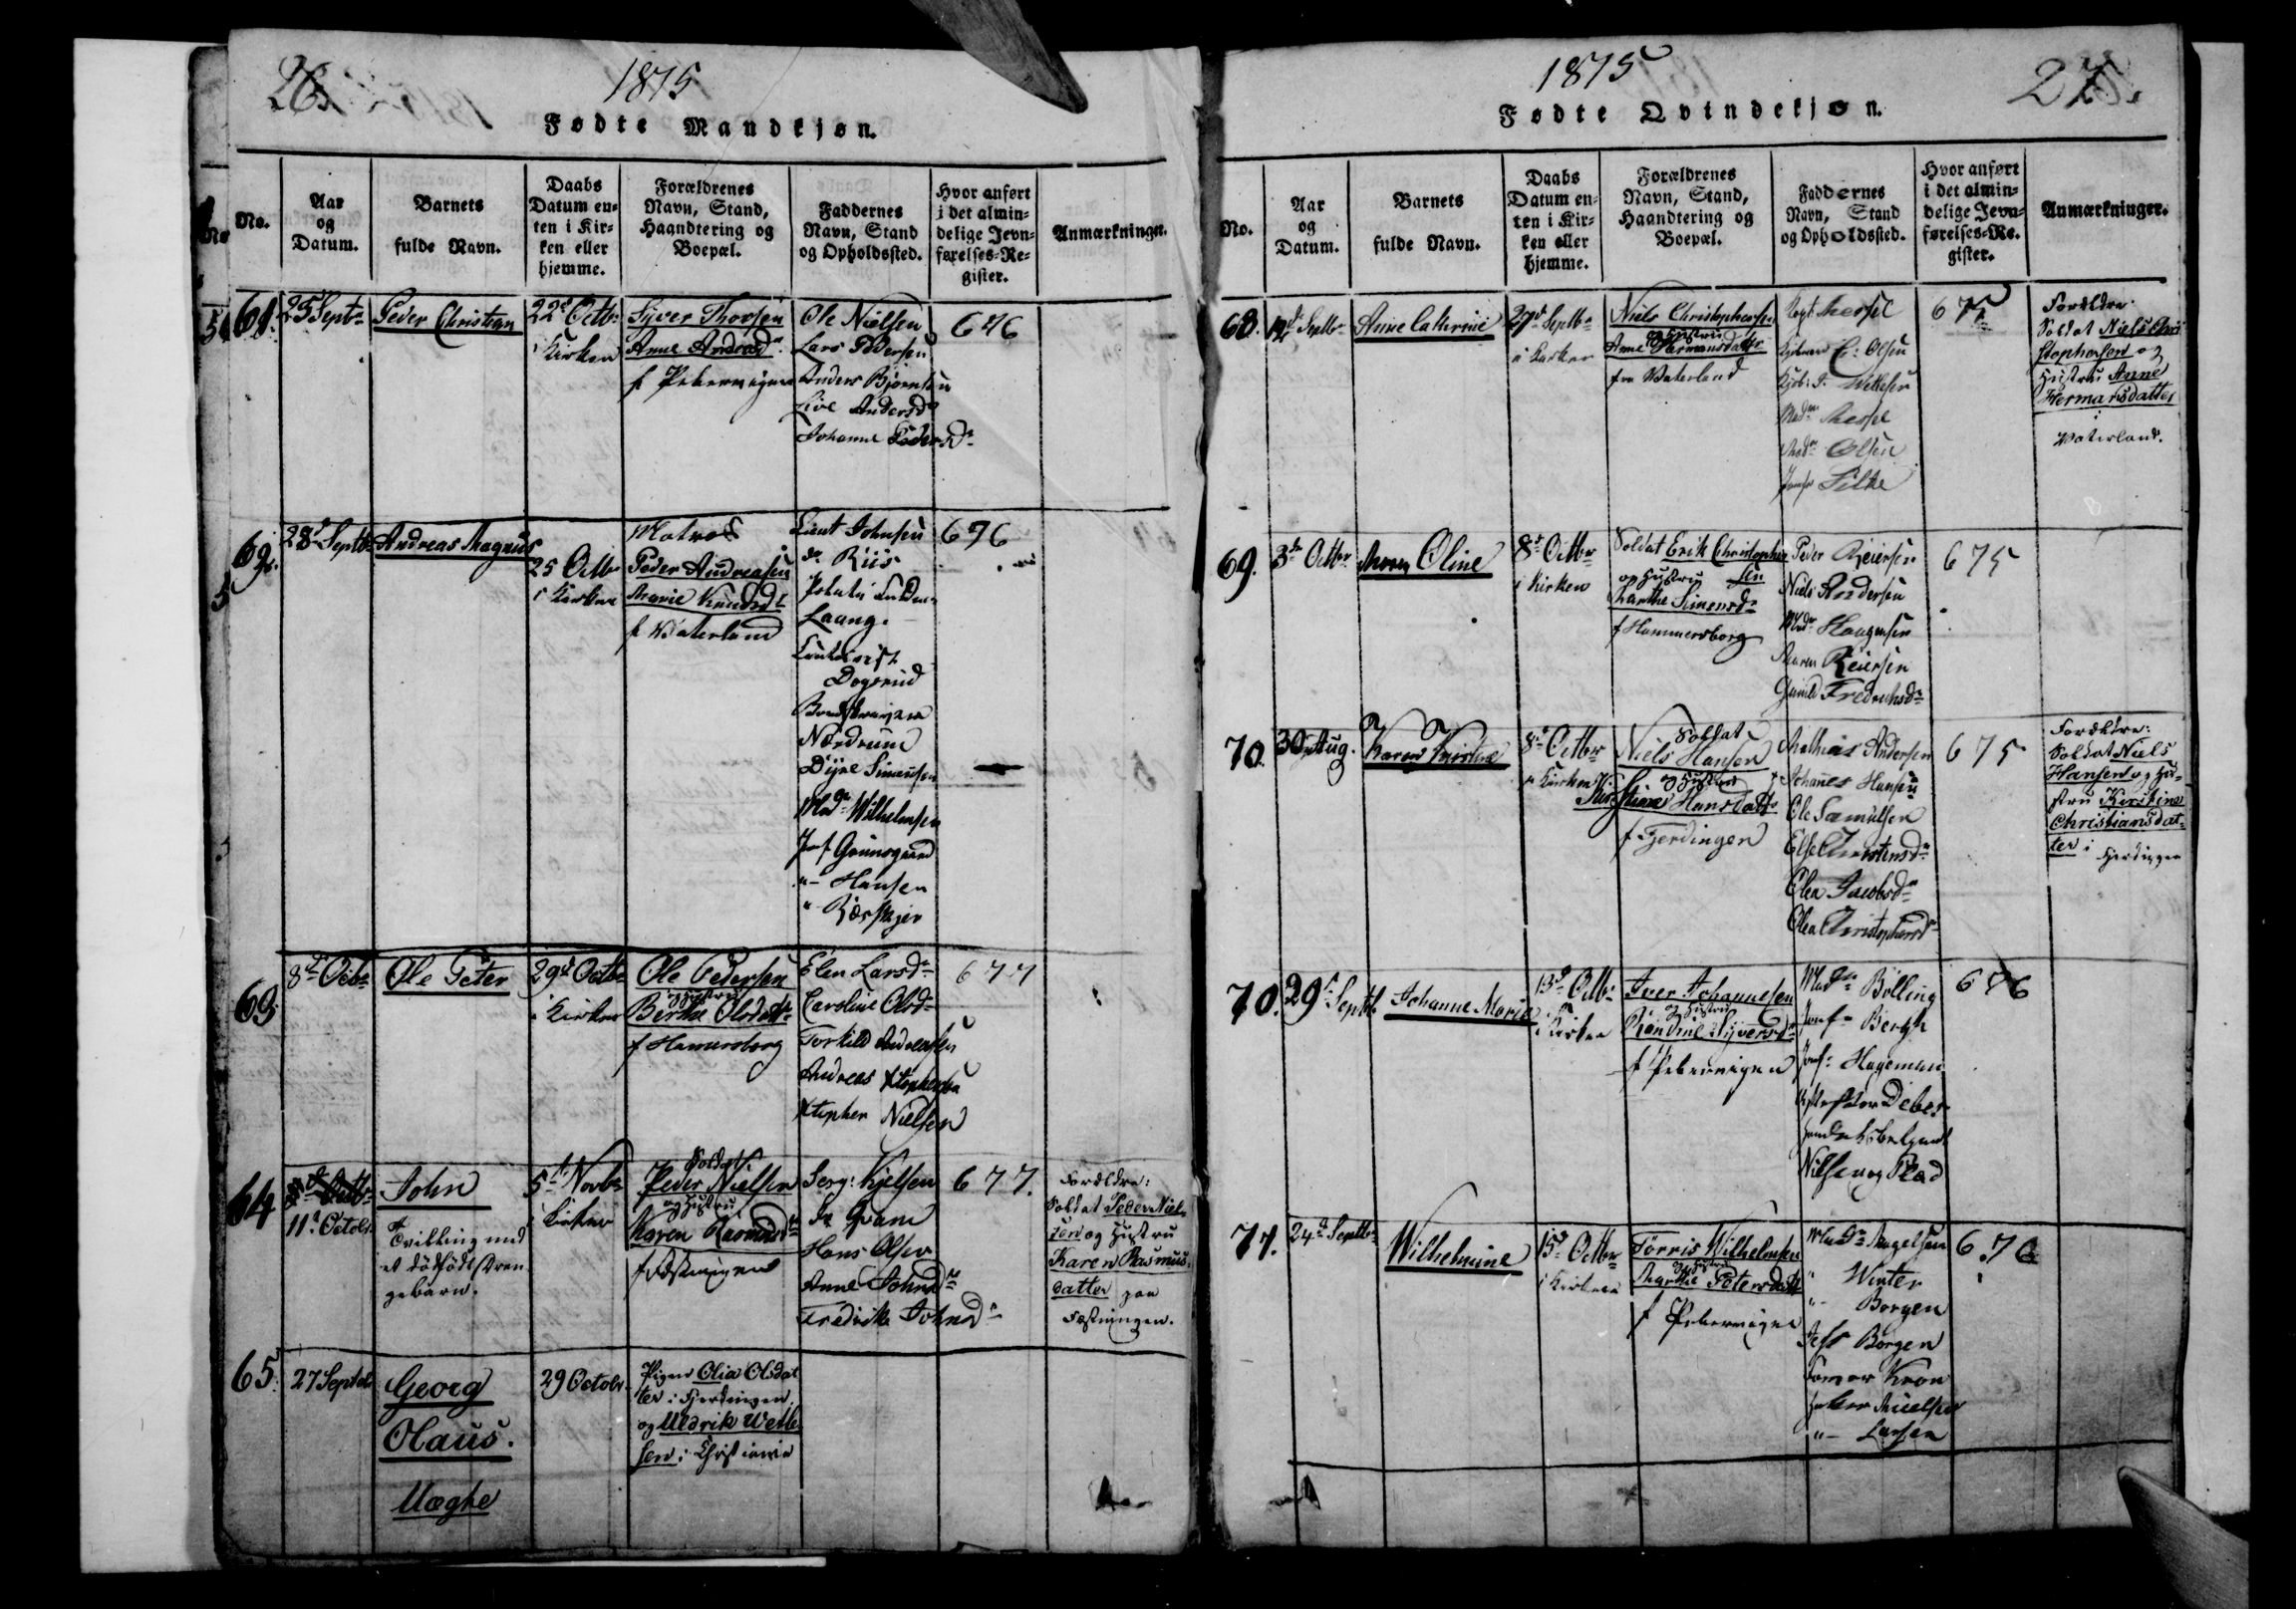 26
1815
Fødte Mandkjøn.
No.
Aar
og
Datum.
Barnets
fulde Navn.
Daabs
Datum en-
ten i Kir-
ken eller
hjemme.
Forældrenes
Navn, Stand,
Haandtering og
Boepæl.
Faddernes
Navn, Stand
og Opholdssted.
Hvor anført
i det almin-
delige Jevn-
førelses-Re-
gister.
Anmærkninger.
25 Septr
Peder Christian
22d Octbr
i Kirken
Syver Thorsen
Anne Andersdr
f Pebervigen
Ole Nielsen
Lars Pedersen
Anders Bjørnsen
Live Andersdr
Johanne Pedersdr
676
28d Septbr
Andreas Magnus
25 Octbr
i Kirken
Matros
Peder Andreasen
Marie Knudsdr
f Vaterland
Lieut Johnsen
dr Riis
Laang
Dogerud
Nordrum
Dyre Simensen
Madr Wilhelmsen
Jmf Grønsgaard
"– Hansen
"
676
8de Octbr
Ole Peter
29d Octbr
i Kirken
Ole Pedersen
og Hustru
Birthe Olsdatter
f Hamersborg
Elen Larsdr
Caroline Olsdr
Torkild Andreasen
Andreas Xtophersen
Xtopher Nielsen
677
64
11t Octobr
John
Tvilling med
et dødfødt Dren-
gebarn.
5t Novbr
i Kirken
Soldat
Peder Nielsen
og Hustru
Karen Rasmusdr
f Fæstningen
Serg: Kjelsen
dr Gram
Hans Olsen
Anne Johnsdr
Fredrike Johnsdr
677.
Forældre:
Soldat Peder Niel-
sen og Hustru
Karen Rasmus-
datter paa
Fæstningen.
65.
27 Septbr
Georg
Olaus.
Uægte
29 Octobr
Pigen Olia Olsdat
ter i Fjerdingen
og Uldrik Wetle
sen i Christiania
1815
27.
Fødte Qvindekjøn.
No.
Aar
og
Datum.
Barnets
fulde Navn.
Daabs
Datum en-
ten i Kir-
ken eller
hjemme.
Forældrenes
Navn, Stand,
Haandtering og
Boepæl.
Faddernes
Navn, Stand
og Opholdssted.
Hvor anført
i det almin-
delige Jevn-
førelses-Re-
gister.
Anmærkninger.
68.
12d Septbr
Anne Cathrine
27d Septbr
i Kirken
Niels Christophersen
og Hustru
Anne Hermansdatter
fra Vaterland
Olsen
Madm
Madm Olsen
Jomfr Silke
Forældre:
Soldat Niels Chri
stophersen og
Hustru Anne
Hermansdatter
i
Vaterland.
69.
3de Octbr
Maren Oline
8d Octbr
i Kirken
Soldat Erik Christopher
sen
og Hustru
Marthe Simensdr
f Hammersborg
Peder Reiersen
Niels Andersen
Madm Haagensen
Maren Reiersen
Gunild Fredrichsdr
675
70.
30 Aug.
Karen Kirstine
8d Octbr
i Kirken
Soldat
Niels Hansen
og Hustru
Kirstine Hansdatter
f Fjerdingen
Mathias Andersen
Johanes Hansen
Ole Samuelsen
Else Christensdr
Elen Jacobsdr
Olea Christophersdr
675
Forældre:
Soldat Niels
Hansen og Hu-
stru Kirstine
Christiansdat-
ter i Fjerdingen
70.
29t Septbr
Johanne Marie
13d Octbr
i Kirken
Iver Johannesen
og Hustru
Syversdr
f Pebervigen
Madm Bölling
Jomfr Bergh
Jomfr Hageman
Debes
Nilsen og Plad
676
71.
24d Septbr
Wilhelmine
15d Octbr
i Kirken
Tørris Wilhelmsen
og Hustru
Marthe Petersdatt
f Pebervigen
Madm Magelsen
" Winter
"– Borgen
Borgen
Kron
Nielsen
"– Larsen
676